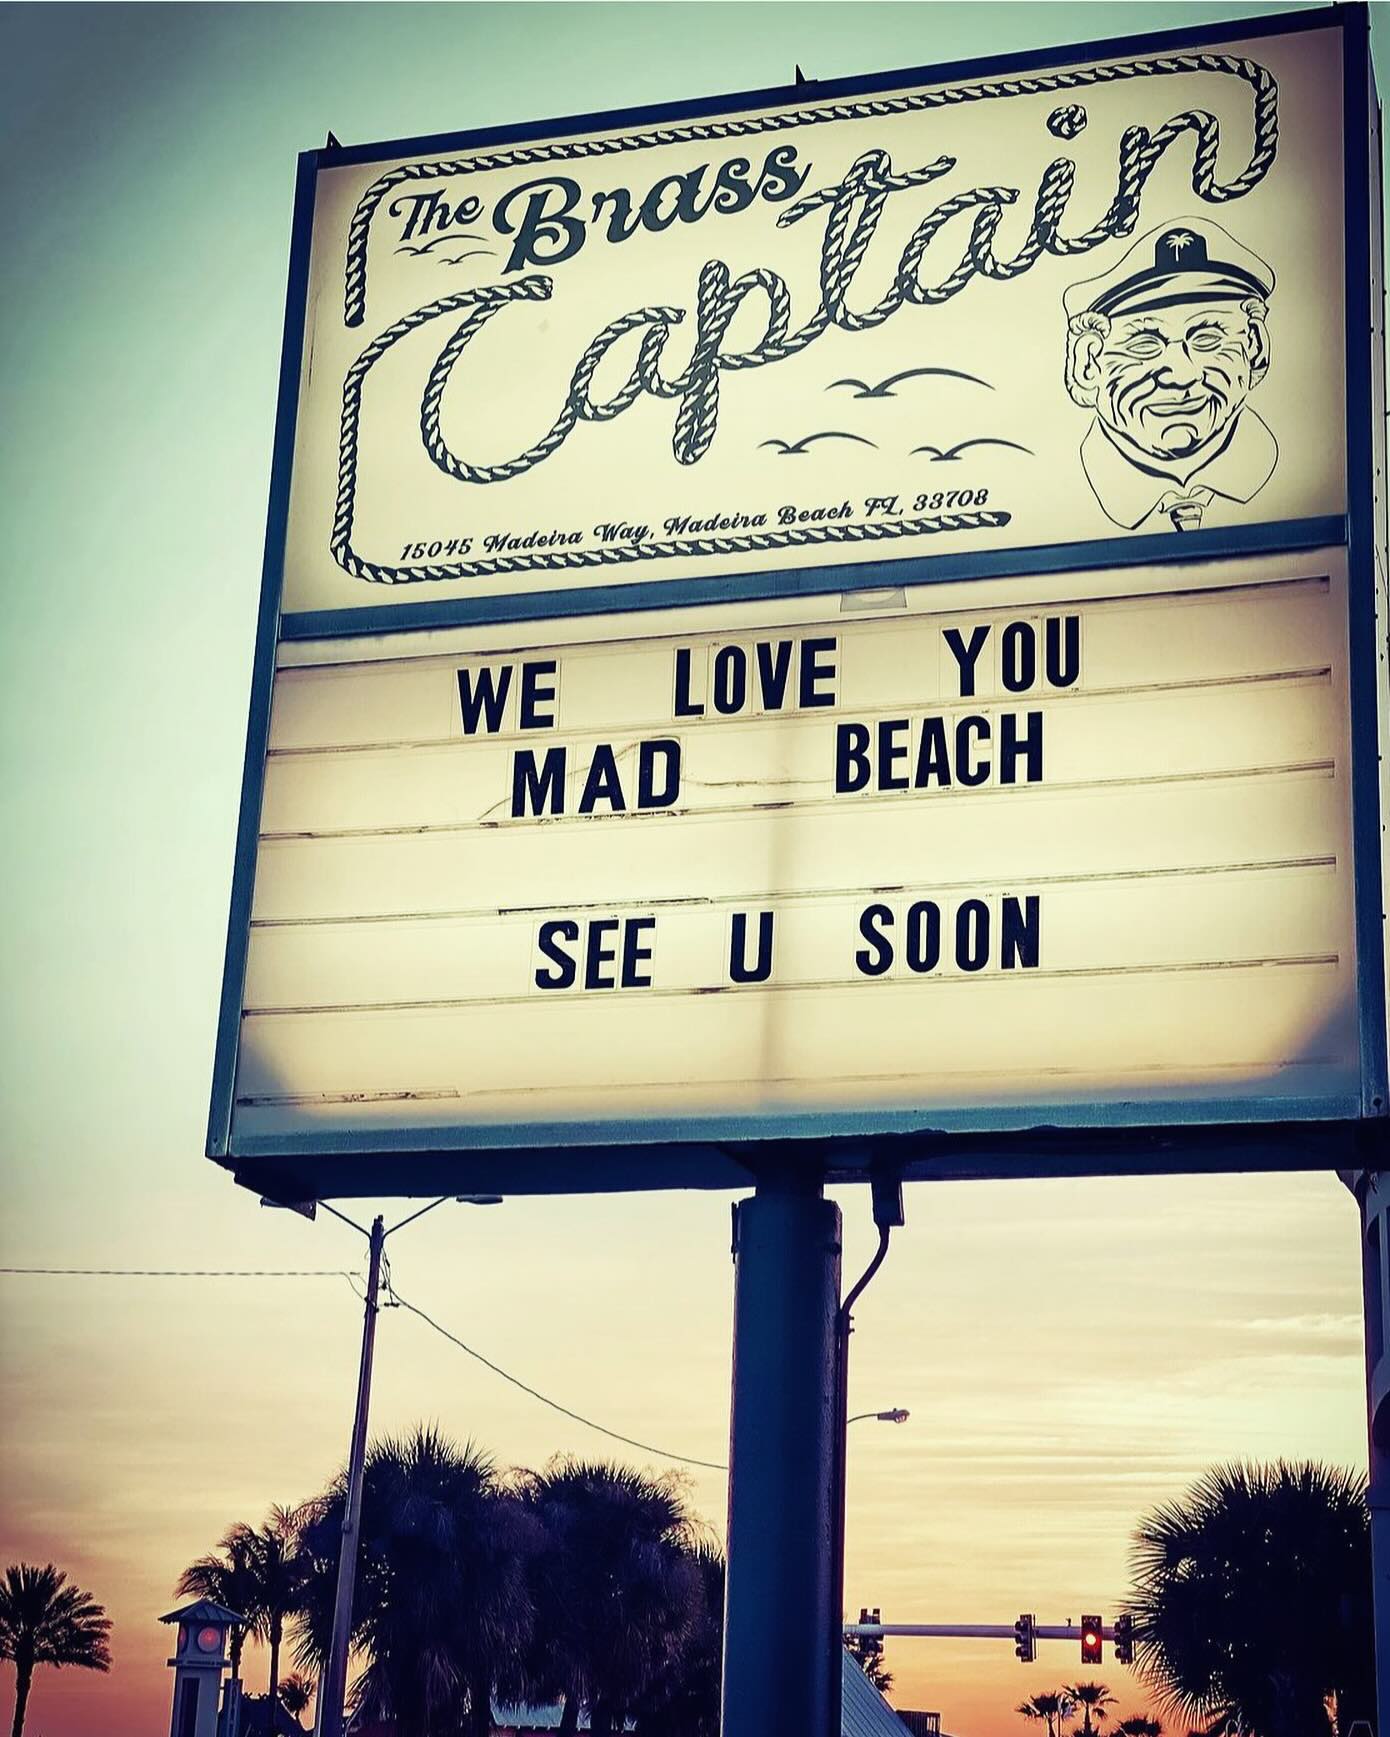 The Brass
Captain
15045 Madeira Way, Madeira Beach FL, 33708
WE LOVE YOU
MAD BEACH
SEE U SOON